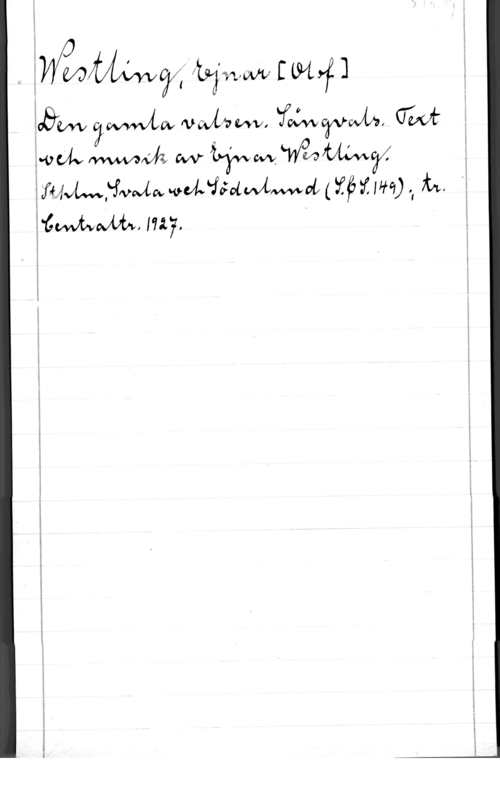 Westling, Ejnar [Olof]
Den gamla valsen. Sångvals. Text
och musik av Ejnar Westling.
Sthlm, Svala och Söderlund (S.&S. 149); tr.
Centraltr. 1927.